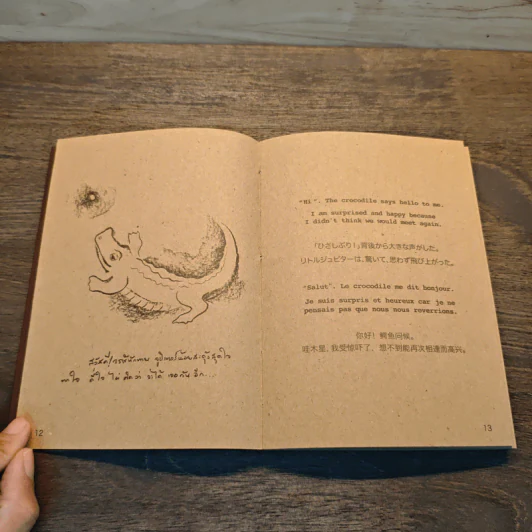 สวัสดี จระเข้ทักทาย
ดีใจ ไม่ คิดว่า จะได้ เจอกัน อีก...
12
"Hi". The crocodile says hello to me.
I am surprised and happy because
I didn't think we would meet again.
「ひさしぶり!」背後から大きな声がした。
リトルジュピターは、驚いて、思わず飛び上がった。
"Salut". Le crocodile me dit bonjour.
Je suis surpris et heureux car je ne
pensais pas que nous nous reverrions.
你好! 鳄鱼问候。
哇木星, 我受惊吓了, 想不到能再次相逢而高兴。
13